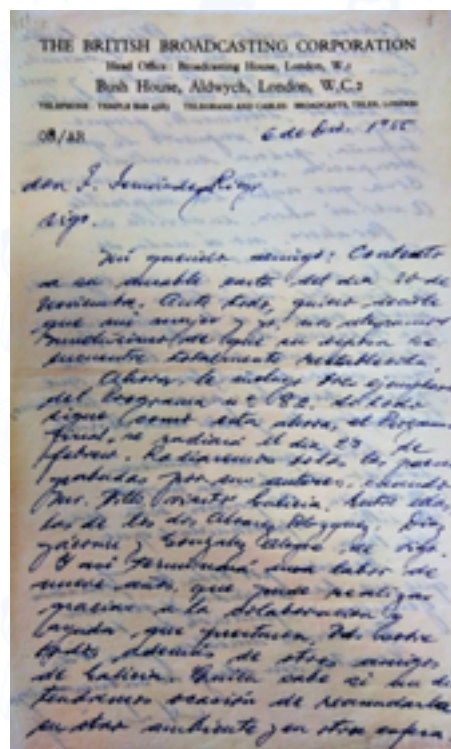 THE BRITISH BROADCASTING CORPORATION
Head Office: Broadcasting House, London, W.1
Bush House, Aldwych, London, W.C.2
TELEPHONE: TEMPLE BAR TELEGRAMS AND CABLES: BROADCASTS, TELEX, LONDON
OB/AR 6 de 1955
don F. Fernández
Vigo.
Mi querido amigo: Contesto
a su amable carta del día 20 de
noviembre. Ante todo, quiero decirle
que mi mujer y yo nos alegramos
muchísimo de que su esposa se
encuentre totalmente restablecida.
Ahora, le incluyo tres ejemplares
del Programa nº 82. Si todo
sigue como está ahora, el Programa
final, se radiará el día 23 de
febrero. Radiaremos todos los poemas
grabados por sus autores, cuando
Mr. visitó Galicia. Entre ellos,
los de los dos Alvarez Blazquez, Díaz
Jácome y González Alegre, de Vigo.
Y así terminará una labor de
nueve años, que pude realizar
gracias a la colaboración y
ayuda, que prestaron
además de otros amigos
de Galicia. Quien sabe si un día
tendremos ocasión de reanudarla
en otro ambiente y en otra esfera.